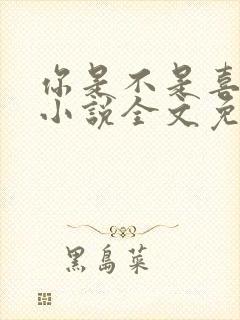 你是不是喜
小说全文免
黑岛菜